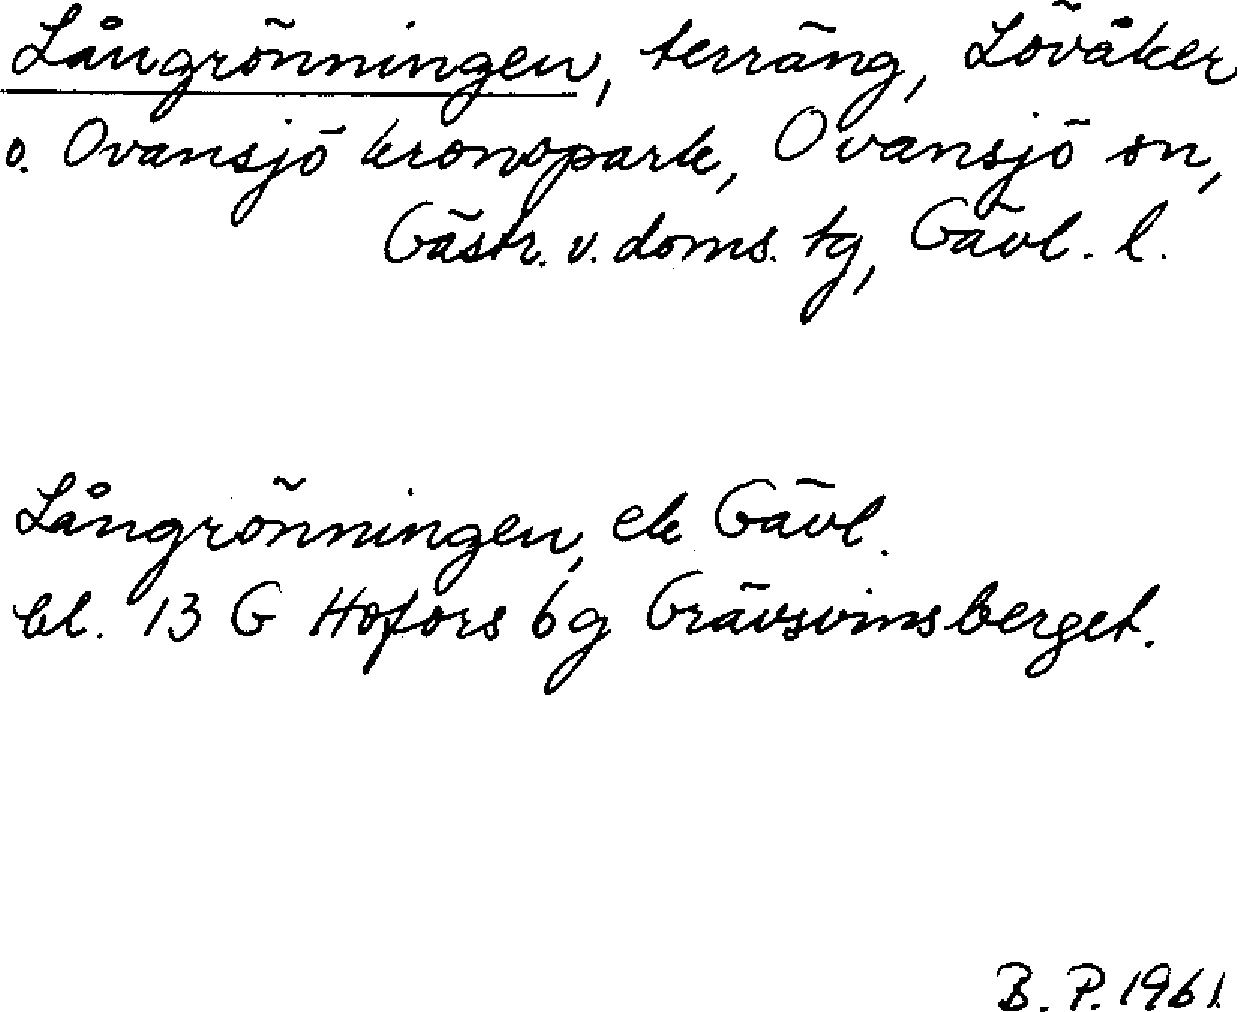 Långrönningen, terräng, Lövåker
o. Ovansjö kronopark, Ovansjö sn,
Gästr. v. doms. tg, Gävl. l.
Långrönningen, ek Gävl.
bl. 13 G Hofors 6g Grävsvinsberget.
B. P. 1961